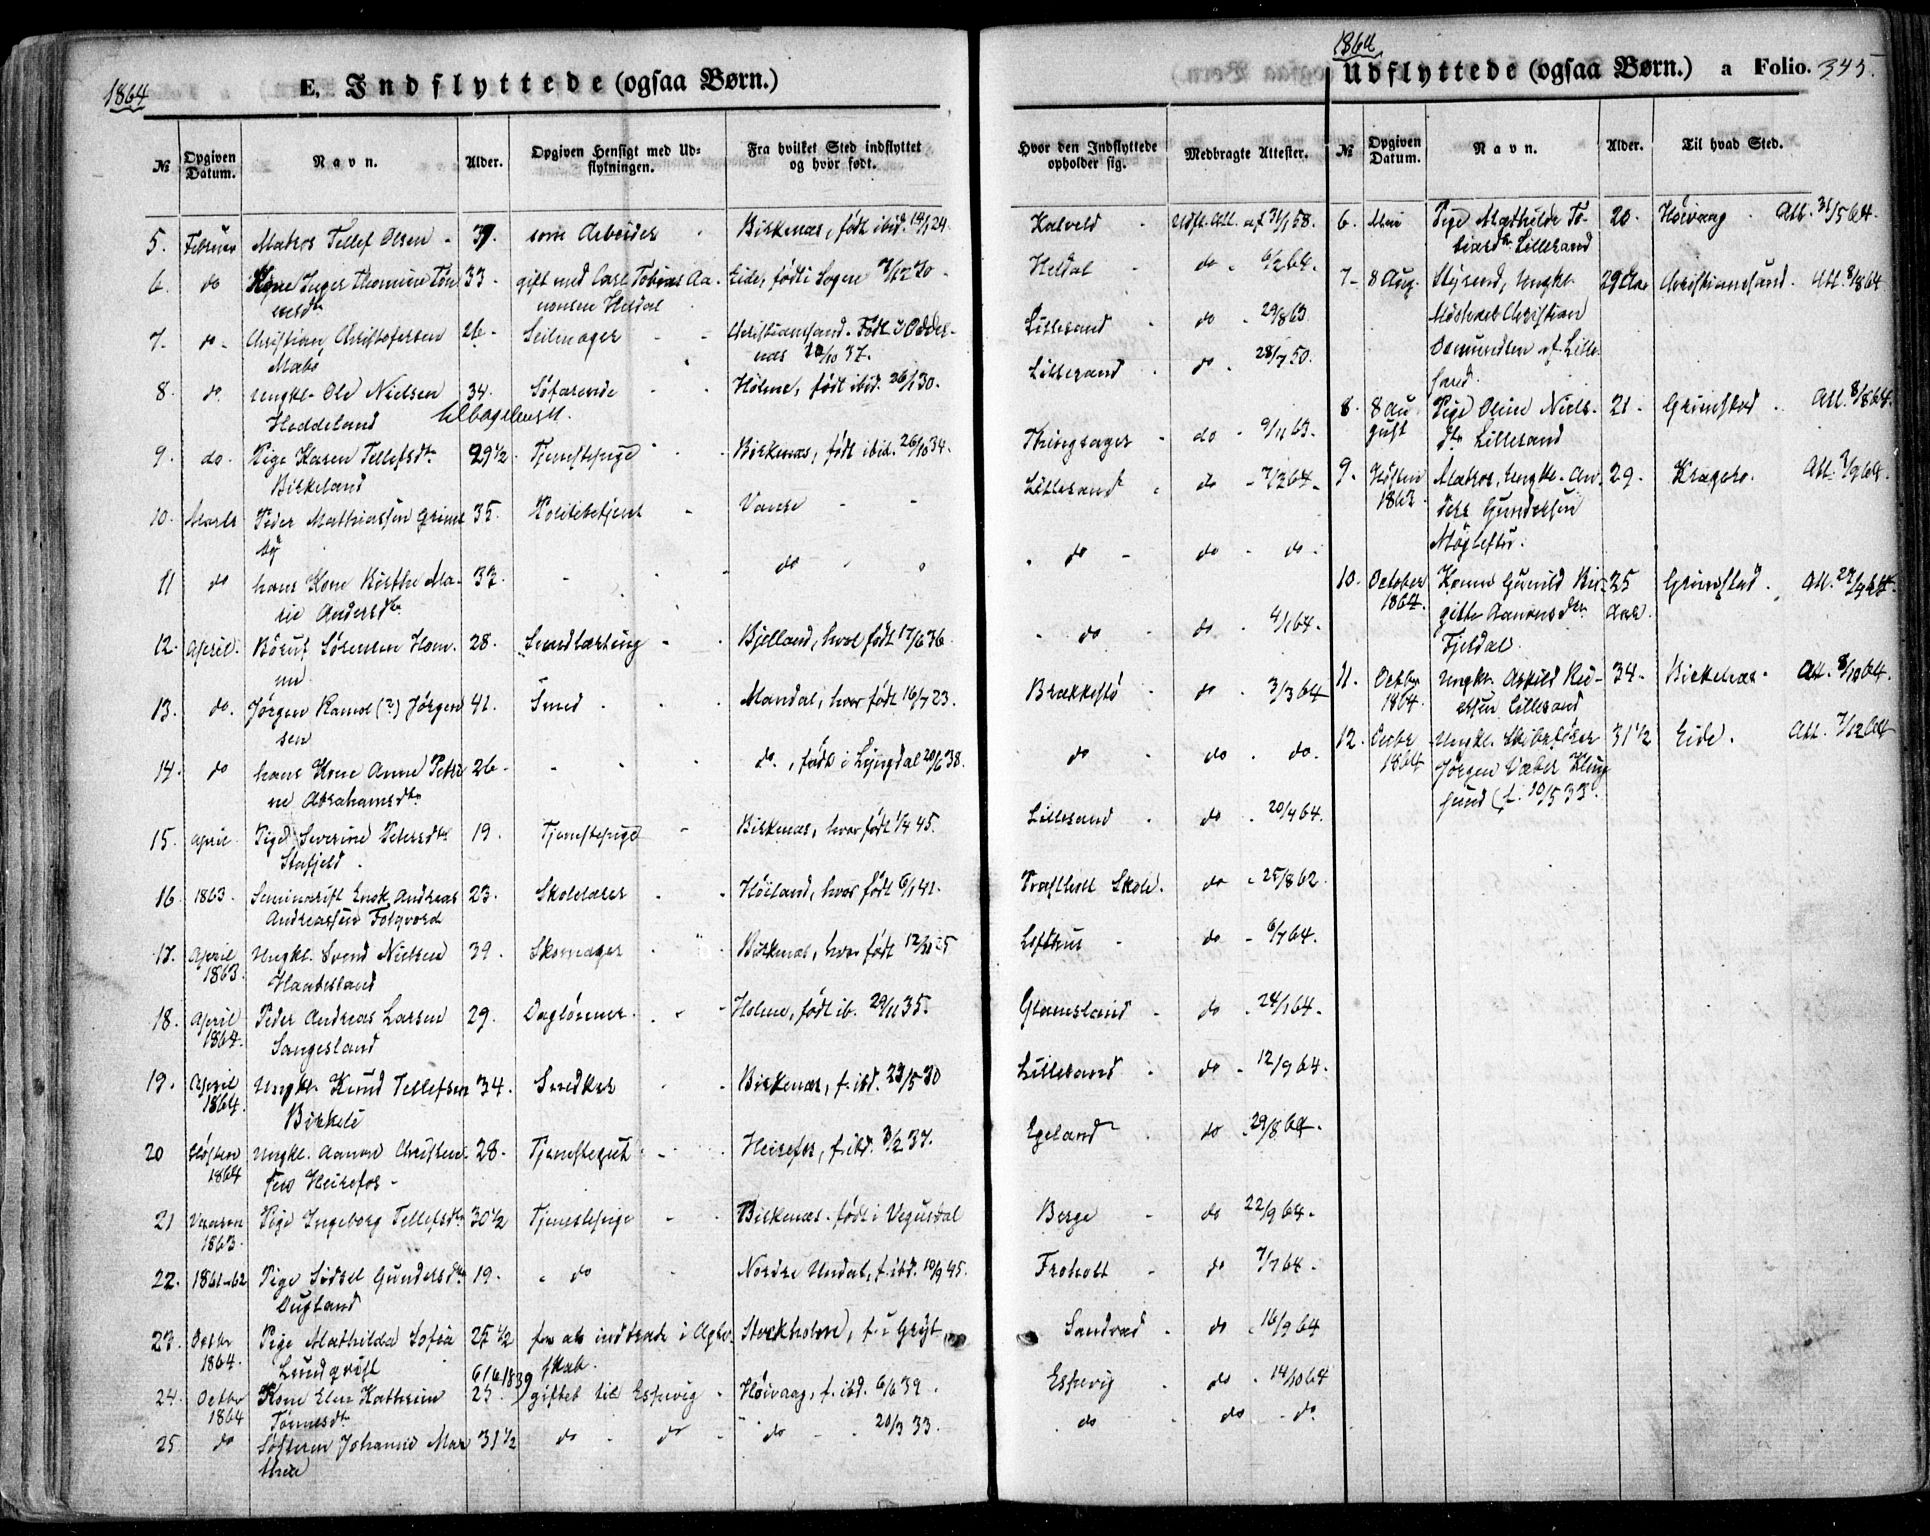 1864
E. Indflyttede (ogsaa Børn.)
№
Opgiven Datum.
Navn.
Alder.
Opgiven Hensigt med Udflytningen.
Fra hvilket Sted indflyttet og hvor født.
Hvor den Indflyttede opholder sig.
Medbragte Attester.
5. Februar Matros Tellef Olsen - 39 som Arbeider Birkenæs, født ibid. Kalveld Udfl. Att. af 31/1 58.
6. do Kone Inger Thomine Tøn 33 gift med Carl Tobias Aa Eide, født i Sogne Heldal do 6/2 64.
nesdtr nonsen Heldal
7. do Christian Christofersen 26. Seilmager Christiansand. Født i Oddernæs 37. Lillesand do 29/8 63
8. do Ungkl. Ole Nielsen 34. Søfarende Holme, født ibid. 26/1 30. Lillesand do 28/7 50.
Heddeland
9. do Pige Karen Tellefsdtr 29 1/2 Tjenestepige Birkenæs, født ibid. 26/10 34. Thingsager do 9/11 63.
Birkeland
10. Marts Peder Mathiassen Grims 35. Politibetjent Vanse Lillesand do 64
by
11 do hans Kone Birthe Ma- 37. do do do do
rie Andersdtr
12. April Sørensen Hom- 28. Bjelland, hvor født 17/6 36 do do 4/1 64.
me
13. do. Jørgen Ramol (?) Jørgen 41. Smed Mandal, hvor født 16/7 23. Brækkestø do 3/3 64
sen
14. do hans Kone Anne Petri 26 do, født i Lyngdal 20/6 38. do do do
ne Abrahamsdtr
15. April Pige Severine Petersdtr 19. Tjenestepige Birkenæs, hvor født 1/4 45. Lillesand do 20/4 64.
Stafjeld
16. 1863. Seminarist Enok Andreas 23. Skolelærer Høiland, hvor født 6/1 41. Skole. do 25/8 62.
Andreassen
17. April 1863. Ungkl. Svend Nielsen 39. Skomager Birkenæs, hvor født Lofthus do 6/7 64.
18. April 1864. Peder Andreas Larsen 29. Daglønner Holme, født ib. 29/11 35. Glamsland do 24/1 64.
Sangesland
19. April 1864. Ungkl. Knud Tellefsen 34. Snedker Birkenæs, f. ibd. 23/5 30 Lillesand do 12/9 64.
Birkeli
20 Høsten 1864 Ungkl. Aanon Christen- 28. Tjenestegut Heirefos, f. ibd. 3/2 37. Egeland do 29/8 64.
sen Heirefos
21 Vaaren 1863. Pige Ingeborg Tellefsdtr 30 1/2 Tjenestepige Birkenæs. født i Vegusdal Berge do 22/9 64.
22. 1861-62 Pige Sødsel Gundersdtr 19. do Nordre Undal, f. ibd. 10/9 45. Froholt do 7/7 64.
Dugland
23. Octbr 1864. Pige Mathilda Sofia 25 1/2 for at indtræde i Ægte- Stockholm, f. i Gryt Sandvad do 16/9 64
Lundqvist skab.
6/6 1839
24. Octbr 1864 Kone Elen Kathrine 25 giftet til Espevig Høivaag, f. ibd. 6/6 39. Espevig do 14/10 64
Tønnesdtr
25 do Søsteren Johanne Mar 31 1/2 do do do 20/3 33. do do do
1864
Udflyttede (ogsaa Børn.) a Folio. 345.
№
Opgiven Datum.
Navn.
Alder.
Til hvad Sted.
6. Mai Pige Mathilde To- 20. Høivaag. Att. 31/5 64.
biasdtr Lillesand
7. 8 Aug. Styrmd, Ungkl. 29 Aar Christiansand. Att. 8/8 64
Christian
Osmundsen af Lille
sand.
8. 8 August Pige Oline Niels- 21. Grimstad. Att. 8/8 64.
dtr Lillesand
9. Høsten 1863 Matros, Ungkl. An- 29. Kragerø. Att. 64.
ders Gundersen
10. October 1864. Konen Gunild Bir- 25 Aar Grimstad. Att. 64.
gitte Aanonsdtr
Fjeldal.
11. Octbr 1864. Ungkl. Askild Kid- 34. Birkenæs. Att. 8/10 64.
Lillesand
12. Decbr 1864 Ungkl. Skibsfører 31 1/2 Eide. Att. 7/12 64
Jørgen Klug
(f. 10/5 33).